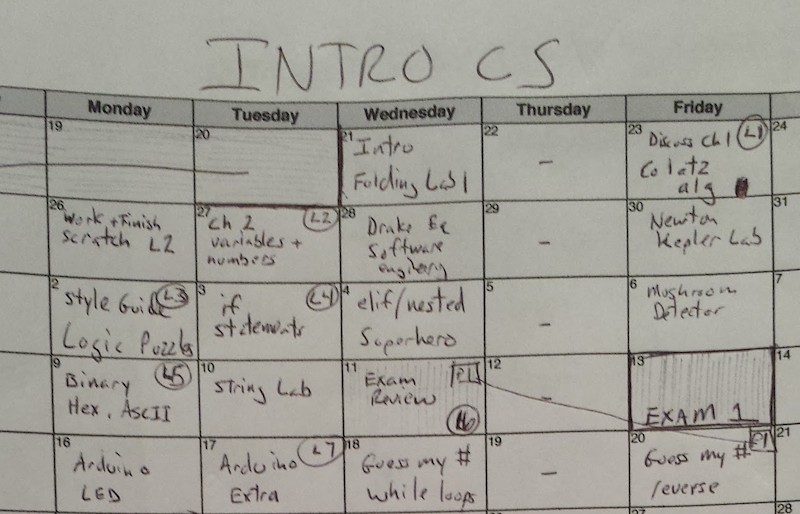 INTRO CS
Monday Tuesday Wednesday Thursday Friday
19
20
21
Intro
Folding Lab 1
22
-
23
L1
Discuss Ch 1
Colatz
alg
24
26
Work + Finish
Scratch L2
27
L2
Ch 2
variables +
numbers
28
Software
29
-
30
Newton
Kepler Lab
31
2
L3
Style Guide
Logic Puzzles
3
L4
if
statements
4
elif/nested
Superhero
5
-
6
Mushroom
Detector
7
9
L5
Binary
Hex, ASCII
10
String Lab
11
Exam
Review
P1
L6
12
-
13
EXAM 1
14
16
Arduino
LED
17
L7
Arduino
Extra
18
Guess my #
while loops
19
-
20
P1
Guess my #
reverse
21
27
28